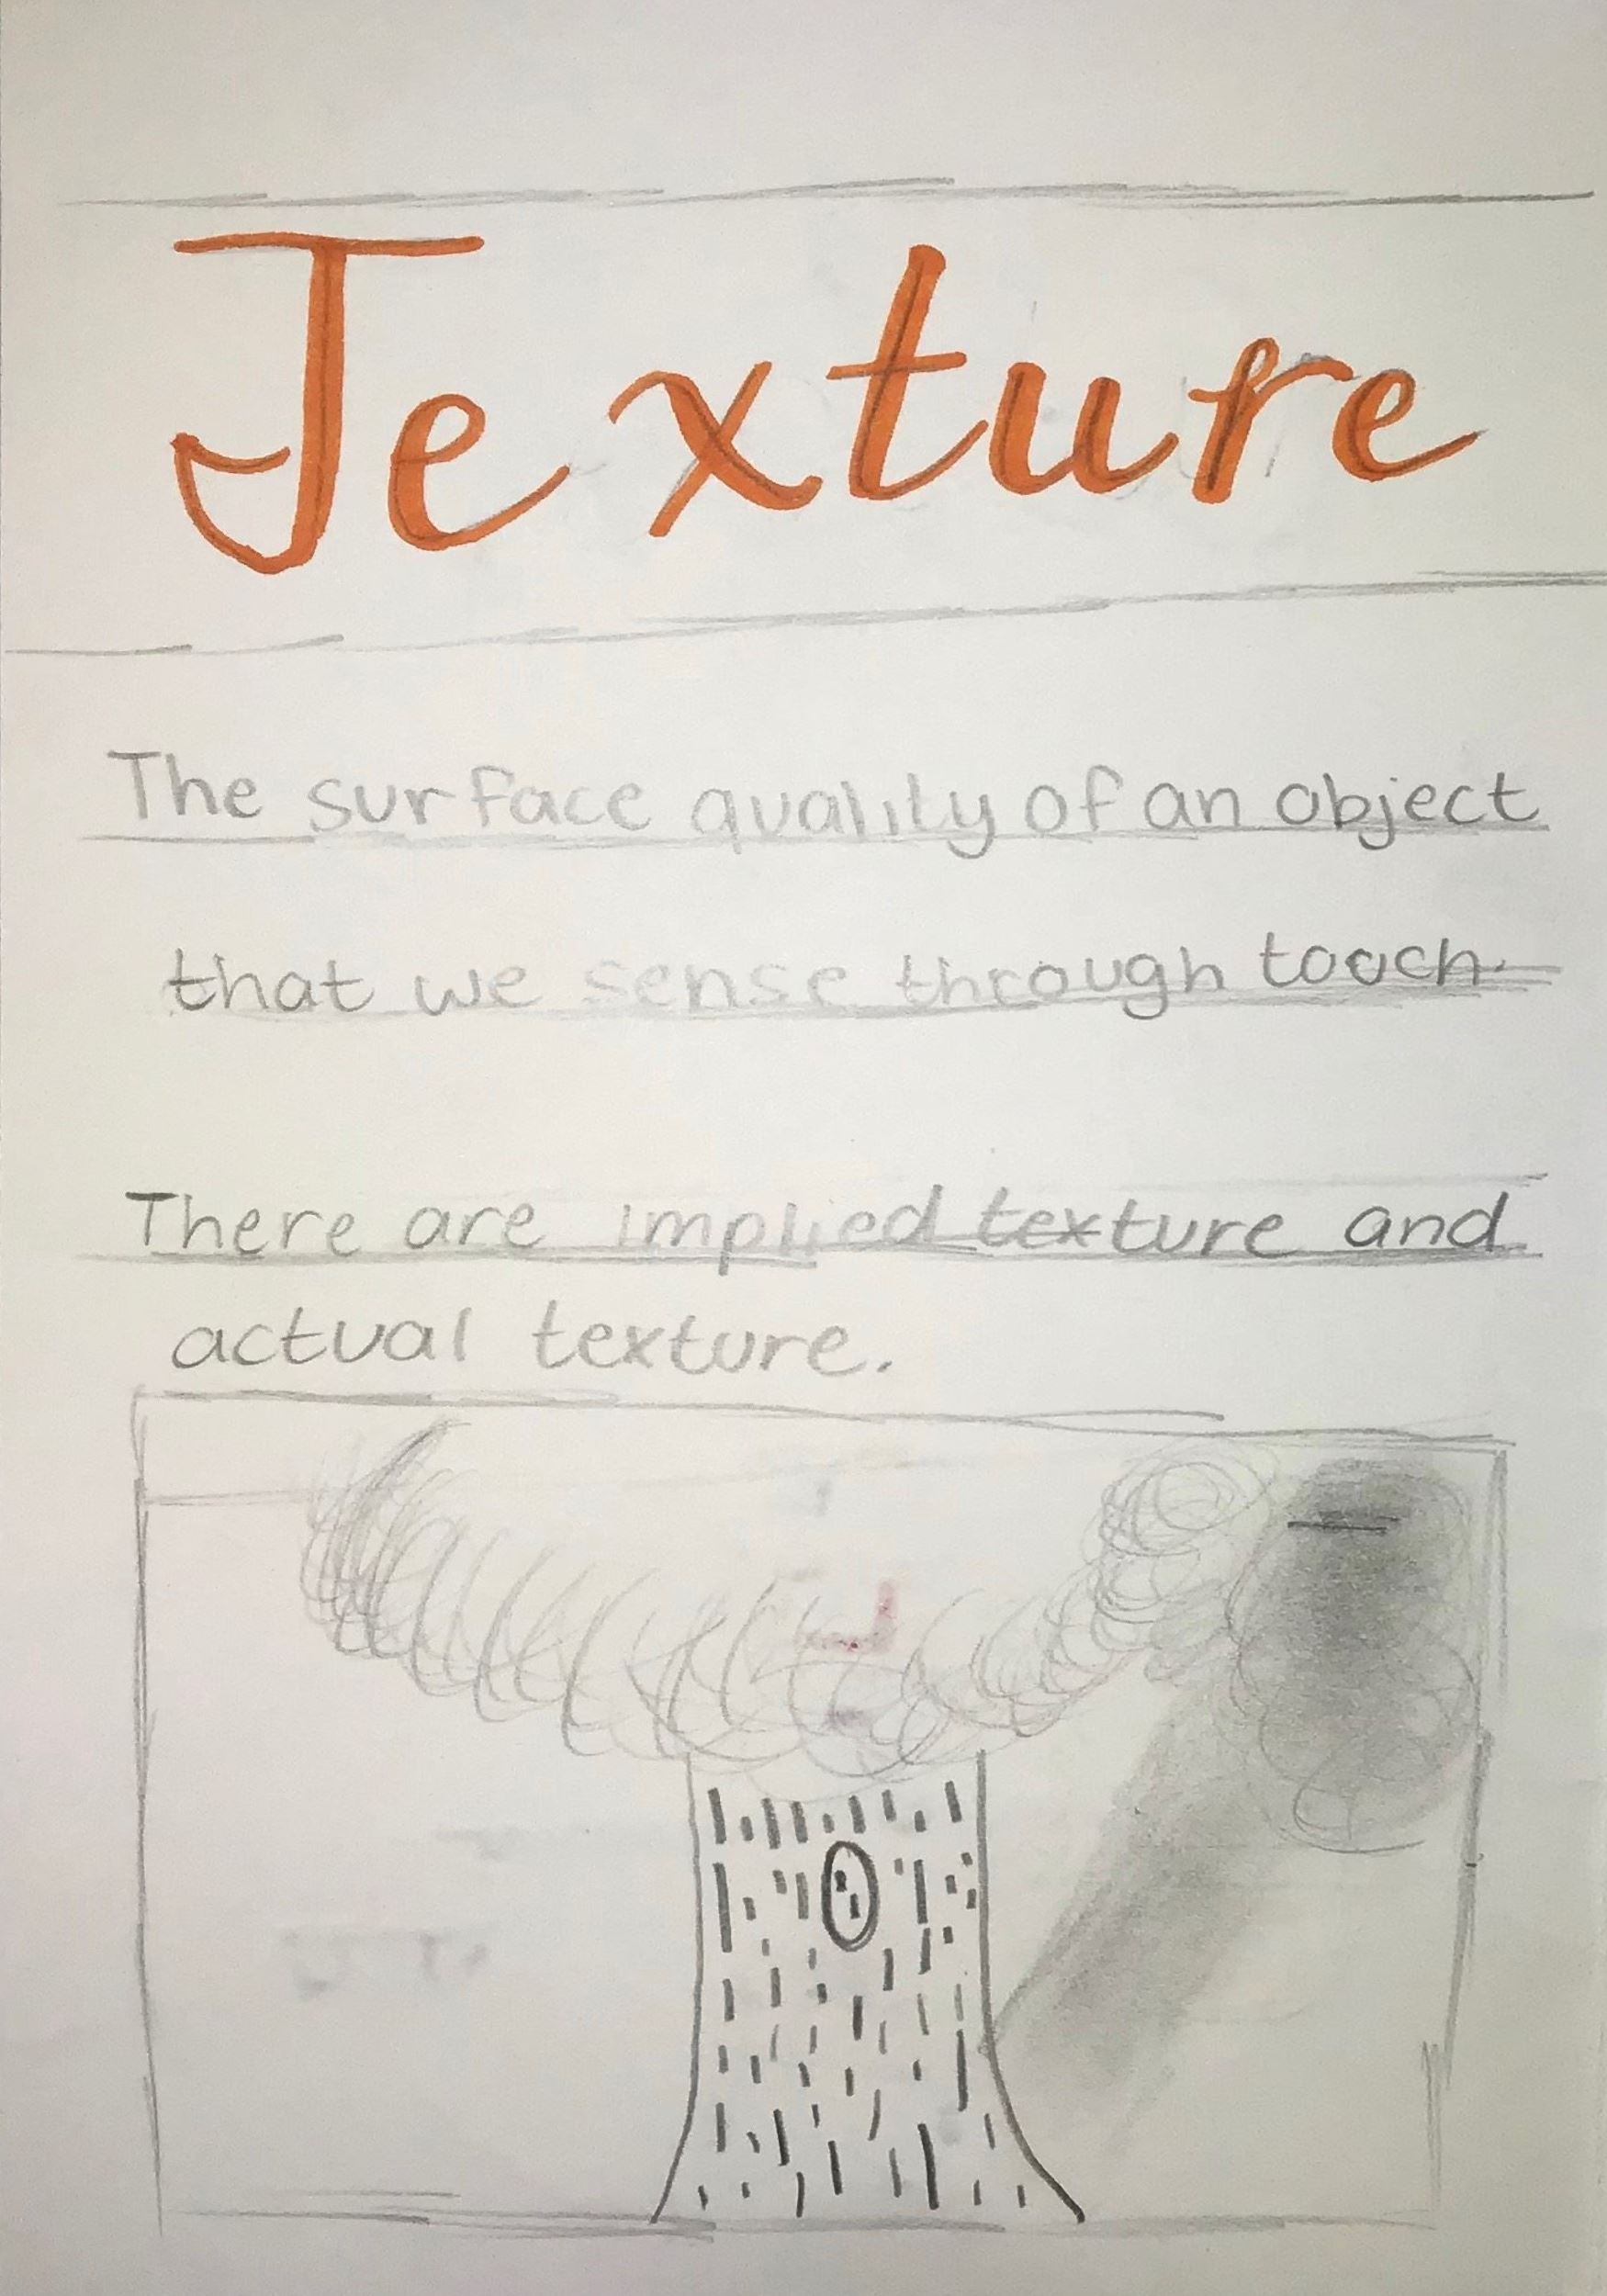 Texture
The surface quality of an object
that we sense through touch.
There are implied texture and
actual texture.